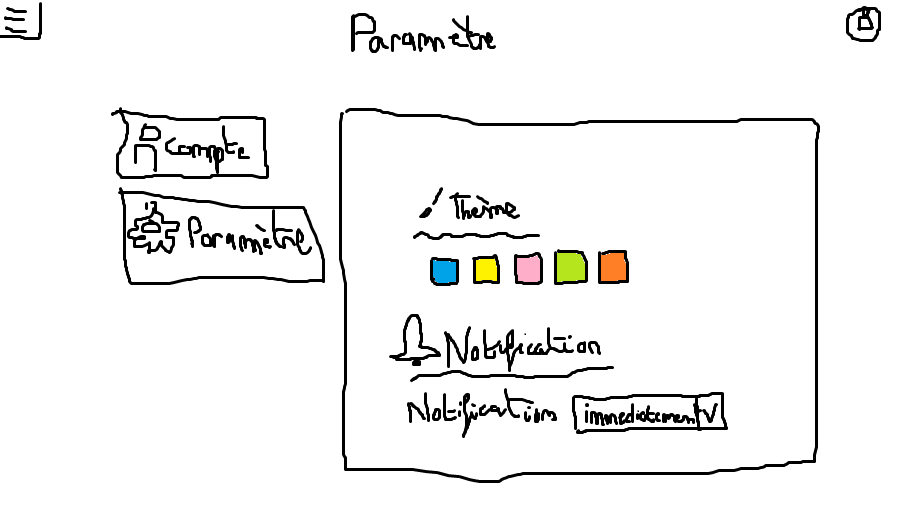 Paramètre
Compte
Paramètre
Thème
Notification
Notification immediatement